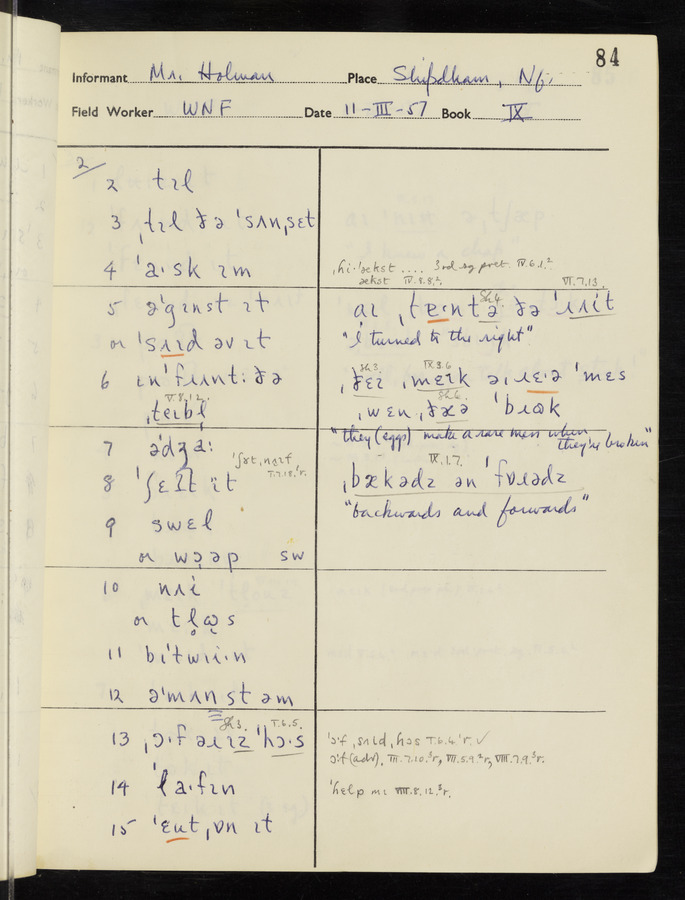 84
Informant Mr. Holman Place Shipdham, Nf.
Field Worker WNF Date 11-III-57 Book IX
2/
2 tɪl
3 ˌtɪl ðə ˈsʌnˌsɛt
4 ˈaˑsk ɪm
5 əˈgɪnst ɪt
or ˈsʌɪd əv ɪt
6 ɪnˈfɹʌnt ðə
V.8.12.
ˌtɛɪbl̩
7 ədʒaː
T.7.18.ʳ.
8 ˈʃɛɪt ɪt
9 swɛl
or wɔəp sw
10 nʌi
or tl̥ɷs
11 biˈtwɪiˑn
12 əˈmʌnst əm
Sh3. T.6.5.
13 ˌɔˑf əɪɪz ˈhɔˑs
14 ˈlaˑfɪn
15 ˈɛʉt ˌɒn ɪt
ˌhiˑˈækst .... 3rd sg pret. IV.6.1.²
ækst IV.8.8.². VI.7.13.
Sh4.
aɪ ˌtɐːntə ðə ˈɹʌit
"I turned to the right"
Sh3. IX.3.6
ˌðɛɪ ˌmɛɪk ə ɹɛːə ˈmɛs
Sh6.
ˌwɛn ˌðæə ˈbɹɷk
"they (eggs) make a rare mess when
they're broken"
IX.1.7.
ˌbækədz ən ˈfɒɹədz
"backwards and forwards"
ˈɔˑf ˌsʌɪd ˌhɔs T.6.4.ˈr. ✓
ɔˑf (adv). III.7.10.³r, VII.5.9.²r, VIII.7.9.³r.
ˈhɛlp mɪ VIII.8.12.³r.